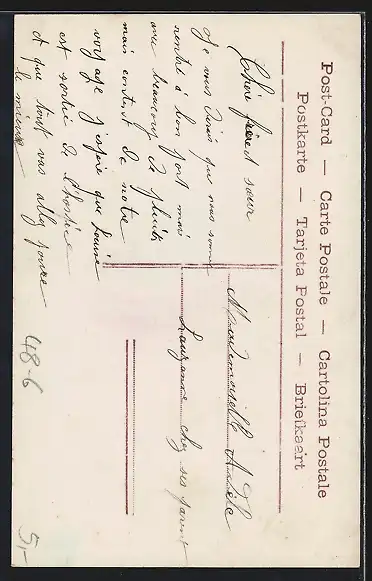 Post-Card — Carte Postale — Cartolina Postale
Postkarte — Tarjeta Postal — Briefkaart
Chère frère et sœur
Je vous dirais que nous somm
rentré à bon port mais
avec beaucoup de pluie
mais content de notre
voyage j'espère que Louise
est sortie de
et que tout vas allez pour
le mieux
Mademoiselle Adèle
Lauzanne chez ses parent
48-6
5,-